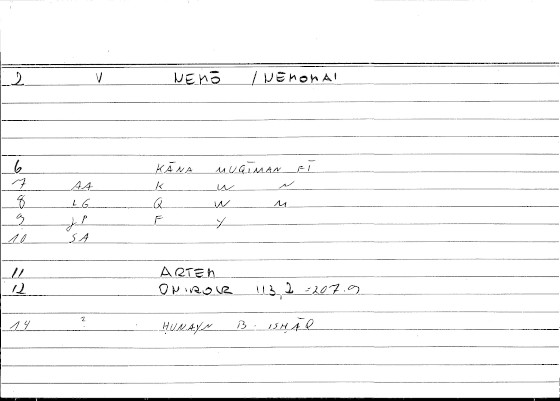 2 V NEMŌ / NĒMOMAI
6 KĀNA MUQĪMAN FĪ
7 AA K W N
8 LG Q W M
9 JP F Y
10 SA
11 ARTEM
12 ONIROCR 113,2 = 207.9
14 2 ḤUNAYN B. ISḤĀQ